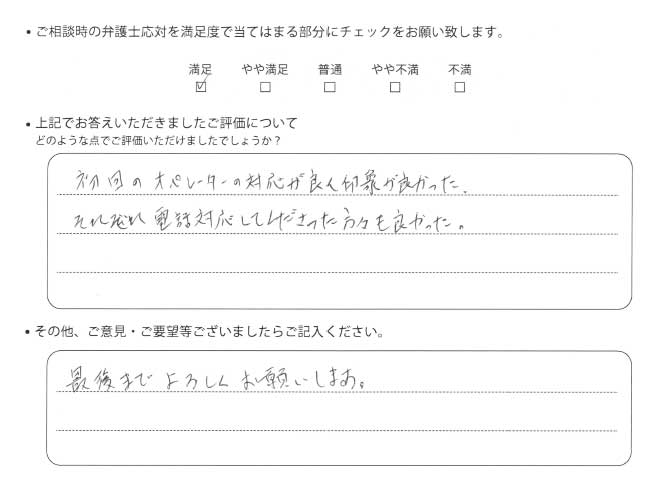 • ご相談時の弁護士応対を満足度で当てはまる部分にチェックをお願い致します。
満足 やや満足 普通 やや不満 不満
☑ ☐ ☐ ☐ ☐
• 上記でお答えいただきましたご評価について
どのような点でご評価いただけましたでしょうか？
初回のオペレーターの対応が良く印象が良かった。
それぞれ電話対応してくださった方々も良かった。
• その他、ご意見・ご要望等ございましたらご記入ください。
最後までよろしくお願いします。